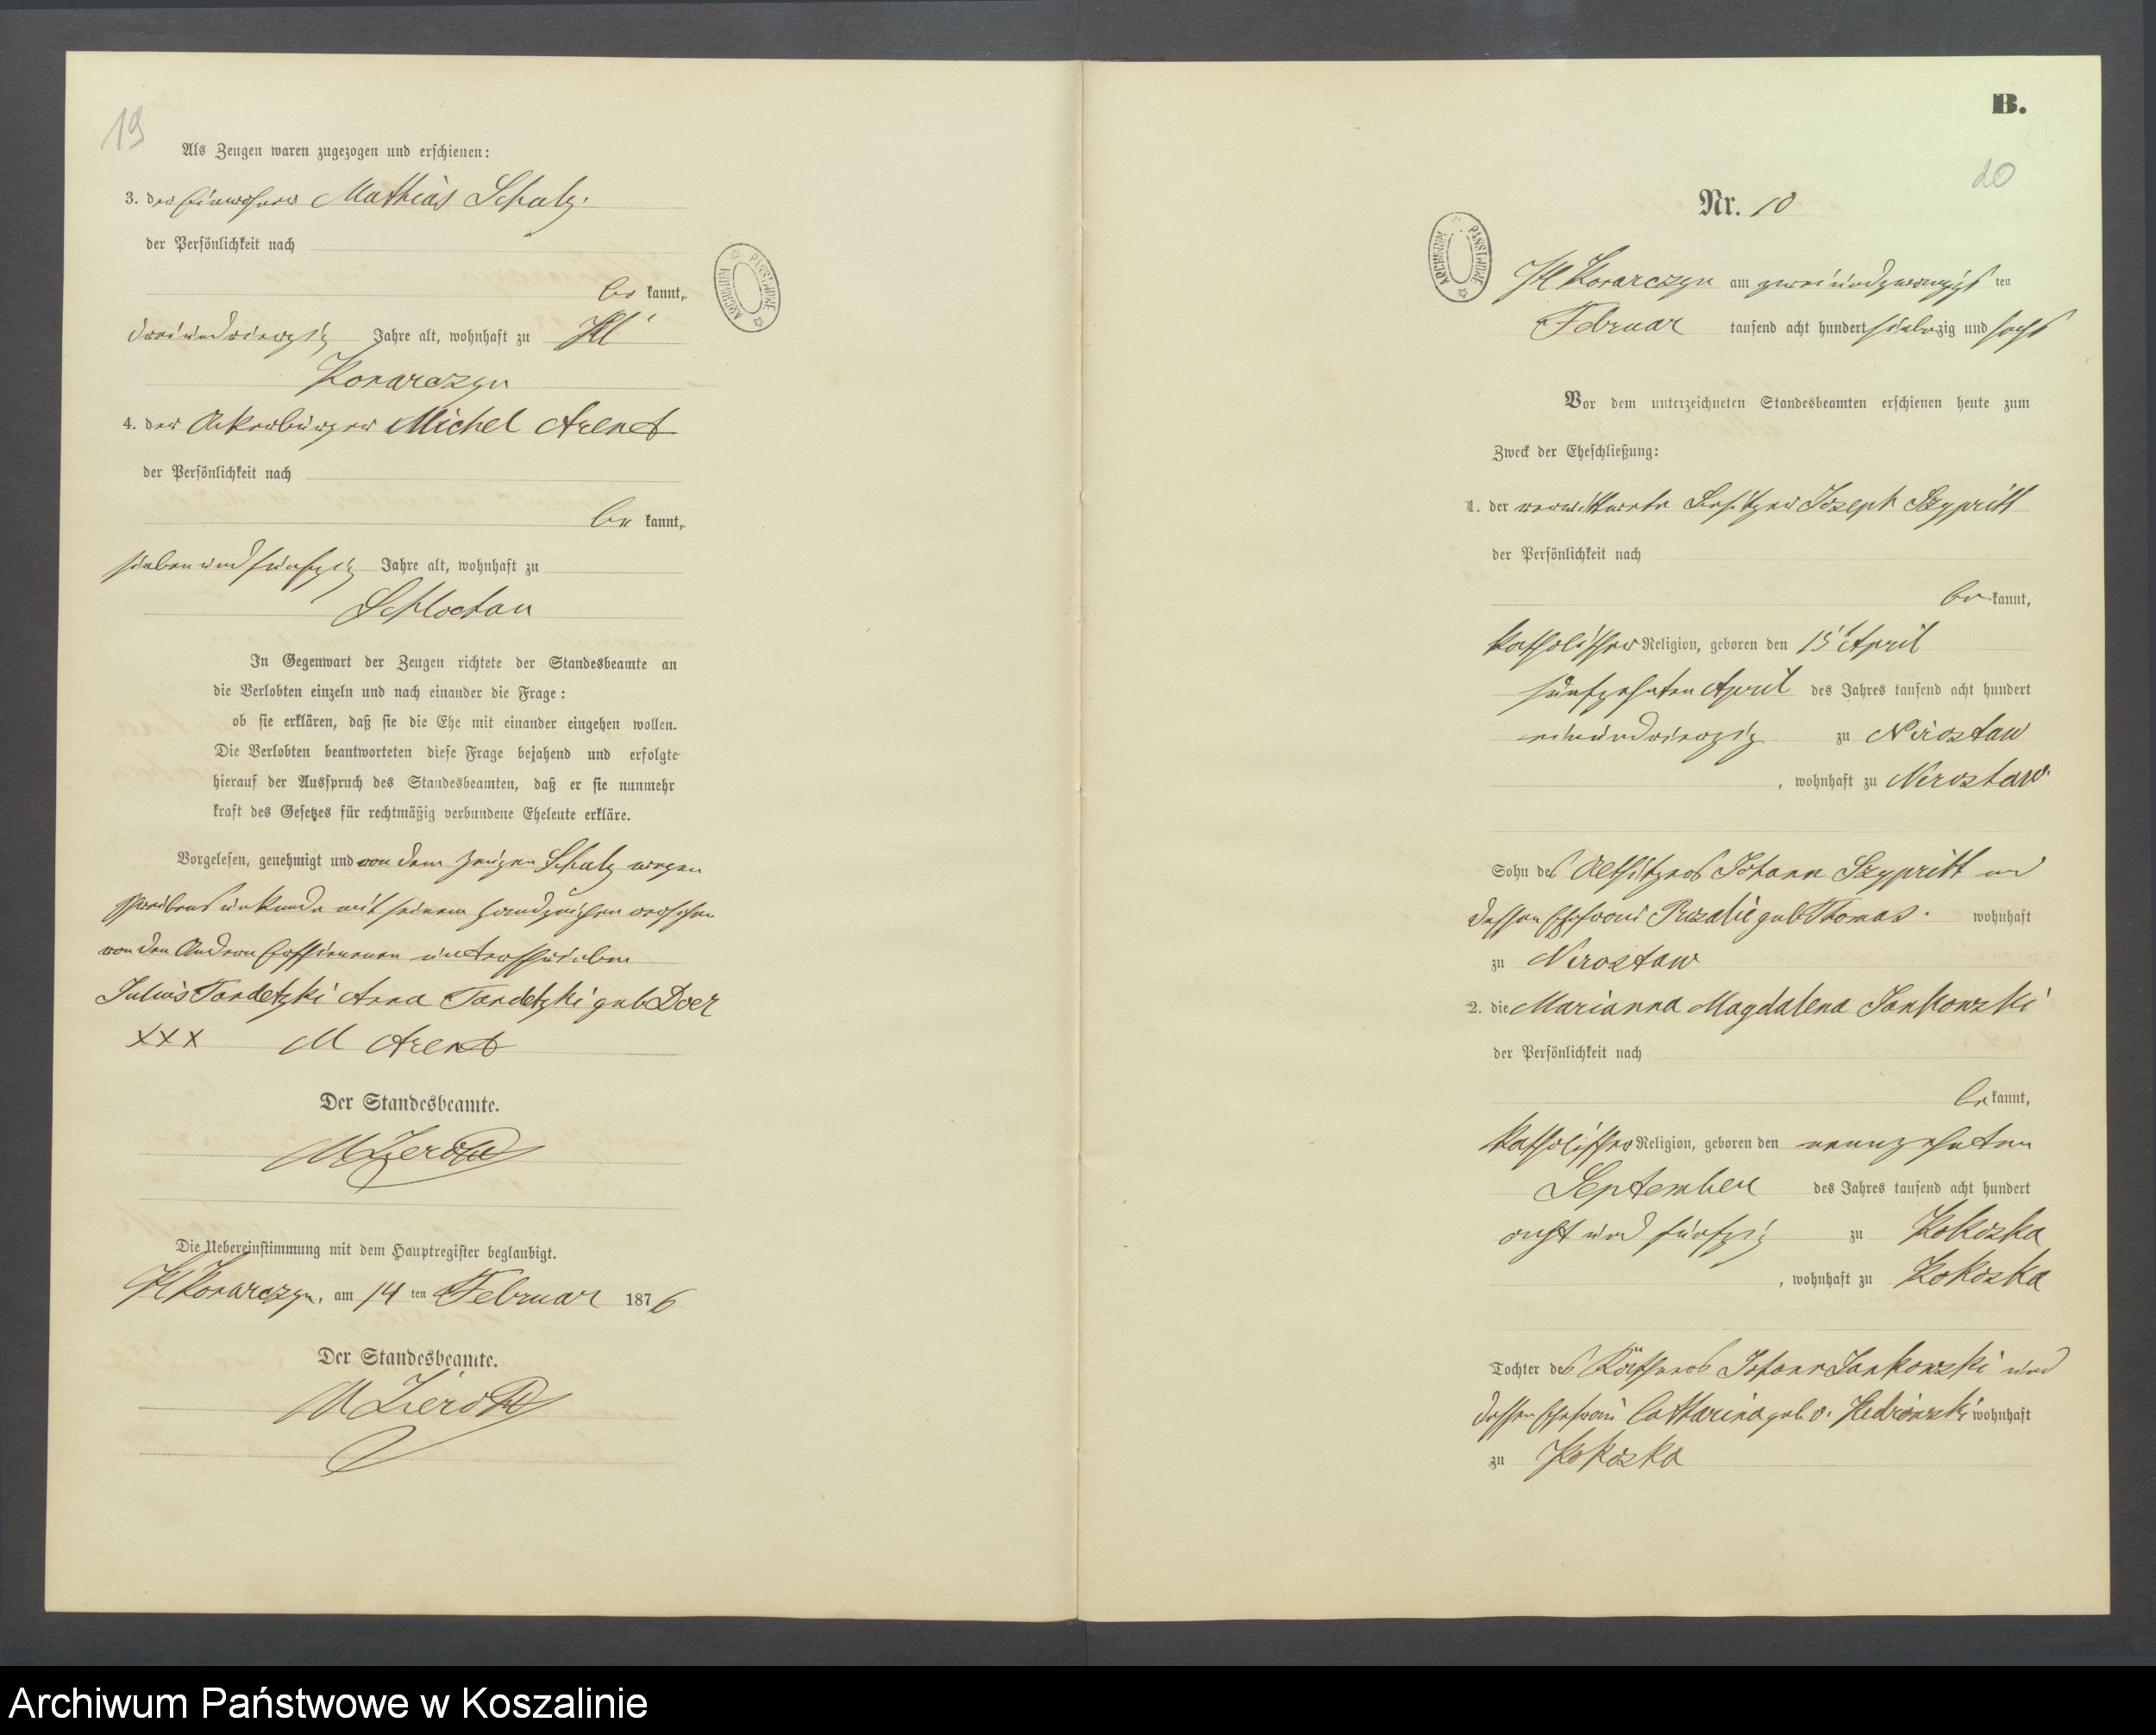 19
Als Zeugen waren zugezogen und erschienen:
3. der Einwohner Mathias Schulz.
der Persönlichkeit nach
be kannt,
dreiundvierzig Jahre alt, wohnhaft zu Kl
Konarczyn
4. der Ackerbürger Michel Arendt
der Persönlichkeit nach
be kannt,
siebenundfünfzig Jahre alt, wohnhaft zu
Schlochau
In Gegenwart der Zeugen richtete der Standesbeamte an
die Verlobten einzeln und nach einander die Frage:
ob sie erklären, daß sie die Ehe mit einander eingehen wollen.
Die Verlobten beantworteten diese Frage bejahend und erfolgte
hierauf der Ausspruch des Standesbeamten, daß er sie nunmehr
kraft des Gesetzes für rechtmäßig verbundene Eheleute erkläre.
Vorgelesen, genehmigt und von dem Zeugen Schulz wegen
Schreibensunkunde mit seinem Handzeichen versehen
von den Andern Erschienenen unterschrieben
Julius Tandetzki Anna Tandetzki geb Doer
XXX M Arendt
Der Standesbeamte.
Die Uebereinstimmung mit dem Hauptregister beglaubigt.
Kl Konarczyn, am 14 ten Februar 1876
Der Standesbeamte.
ARCHIWUM PAŃSTWOWE
B.
20
Nr. 10
ARCHIWUM PAŃSTWOWE
Kl Konarczyn am zweiundzwanzigsten
Februar tausend acht hundert siebenzig und sechs
Vor dem unterzeichneten Standesbeamten erschienen heute zum
Zweck der Eheschließung:
1. der verwittwete Besitzer Joseph Szypritt
der Persönlichkeit nach
be kannt,
katholischer Religion, geboren den 15t April
fünfzehnten April des Jahres tausend acht hundert
einundvierzig zu Nierostaw
, wohnhaft zu Nierostaw
Sohn des Altsitzers Johann Szypritt und
dessen Ehefrau Rosalie geb Thomas. wohnhaft
zu Nierostaw
2. die Marianna Magdalena Jankowski
der Persönlichkeit nach
be kannt,
katholischer Religion, geboren den neunzehnten
September des Jahres tausend acht hundert
acht und fünfzig zu Kokoszka
, wohnhaft zu Kokoszka
Tochter des Käthners Johann Jankowski und
dessen Ehefrau Catharina geb. v. wohnhaft
zu Kokoszka
Archiwum Państwowe w Koszalinie